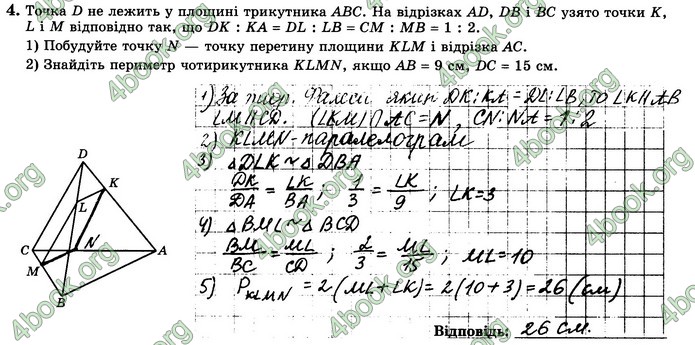 4. Точка D не лежить у площині трикутника ABC. На відрізках AD, DB і BC узято точки K,
L і M відповідно так, що DK : KA = DL : LB = CM : MB = 1 : 2.
1) Побудуйте точку N — точку перетину площини KLM і відрізка AC.
2) Знайдіть периметр чотирикутника KLMN, якщо AB = 9 см, DC = 15 см.
1) За теор. Фалеса якщо DK:KA = DL:LB, то LK∥AB
LM∥CD. (LKM)∩AC=N, CN:NA=1:2
2) KLMN-паралелограм
3) △DLK ~ △DBA
DK/DA = LK/BA ; 1/3 = LK/9 ; LK=3
4) △BML ~ △BCD
BM/BC = ML/CD ; 2/3 = ML/15 ; ML=10
5) P KLMN = 2(ML+LK) = 2(10+3) = 26 (см)
Відповідь: 26 см.
D
K
L
C
N
A
M
B
4book.org